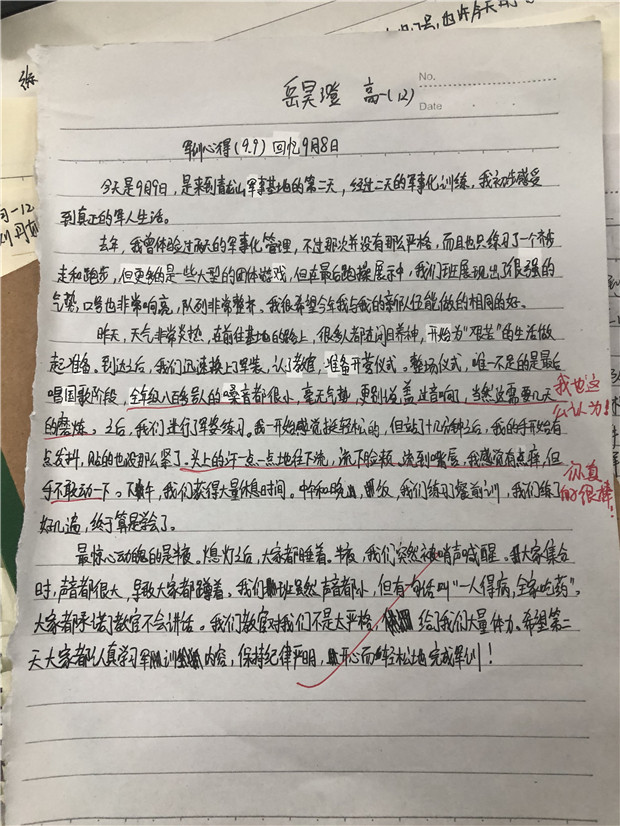 No.
岳昊澄 高一(12)
Date
军训心得(9.9) 回忆9月8日
今天是9月9日，是来到青龙山军事基地的第二天，经过二天的军事化训练，我初步感受
到真正的军人生活。
去年，我曾体验过两天的军事化管理，不过那次并没有那么严格，而且也只练习了一个齐步
走和跑步，但更多的是一些大型的团体游戏，但在最后跑操展示中，我们班展现出了很强的
气势，口号也非常响亮，队列非常整齐。我很希望今年我与我的新队伍能做的相同的好。
昨天，天气非常炎热，在前往基地的路上，很多人都在闭目养神，开始为“艰苦”的生活做
起准备。到达之后，我们迅速换上了军装，认了教官，准备开营仪式。整场仪式，唯一不足的是最后
唱国歌阶段，全年级八百多号人的嗓音都很小，毫无气势，更别说盖过音响了，当然这需要几天
我也这
么认为！
的磨炼。之后，我们进行了军姿练习。我一开始感觉挺轻松的，但站了十几分钟之后，我的手开始有
点发抖，贴的也没那么紧了。头上的汗一点一点地往下流，流下脸颊，流到嘴唇，我感觉有点痒，但
手不敢动一下。下午，我们获得大量休息时间。中午和晚上，我们练习了餐前训，我们练了
你真
的很棒！
好几遍，终于算是学会了。
最惊心动魄的是半夜。熄灯之后，大家都睡着。半夜，我们突然被哨声喊醒。大家集合
时，声音都很大，导致大家都蹲着。我们班虽然声音都小，但有句话叫“一人得病，全家吃药”。
大家都承诺教官不会讲话。我们教官对我们不是太严格，给了我们大量体力。希望第二
天大家都认真学习军训内容，保持纪律严明，开心而轻松地完成军训！